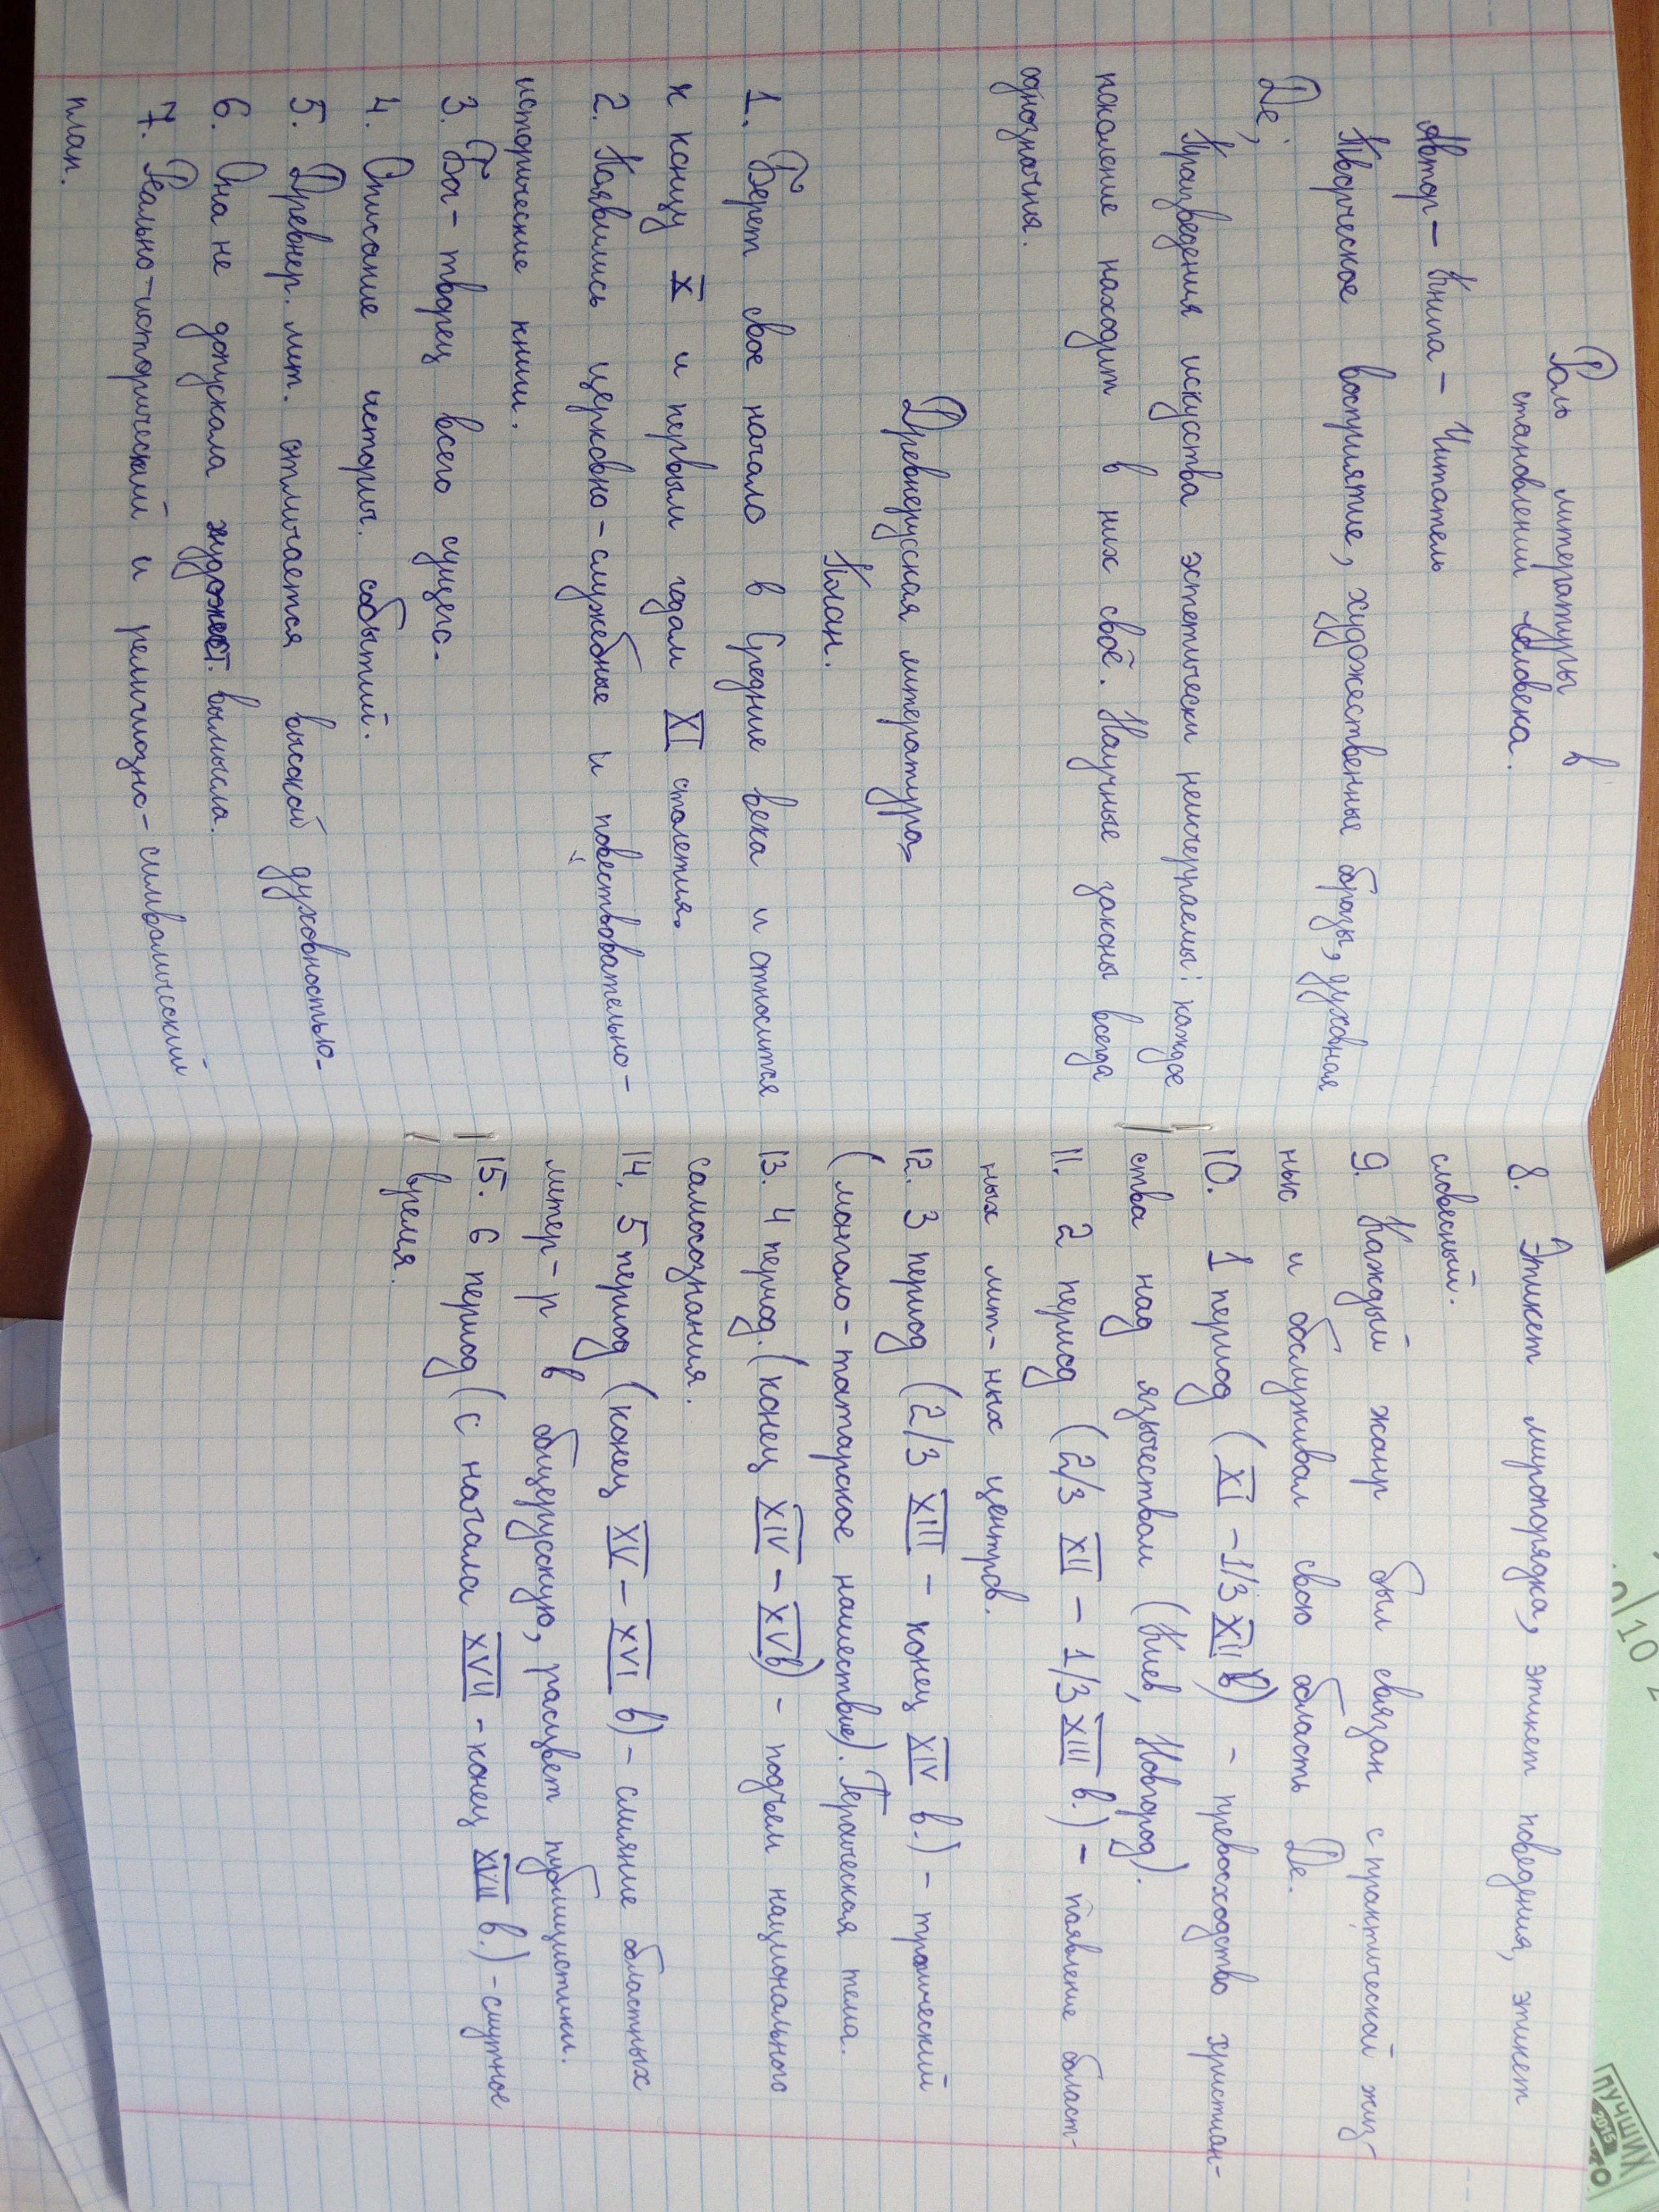 Роль литературы в
становлении человека.
Автор – Книга – Читатель
Творческое восприятие, художественные образы, духовная
Де;
Произведения искуства эстетически неисчерпаемы: каждое
поколение находит в них своё. Научные законы всегда
однозначны.
Древнерусская литература
План.
1. Берет свое начало в Средние века и относится
к концу X и первым годам XI столетия.
2. Появились церковно-служебные и повествовательно-
исторические книги.
3. Бог – творец всего сущего.
4. Описание историч. событий.
5. Древнер. лит. отличается высокой духовностью.
6. Она не допускала художест. вымысла.
7. Реально-исторический и религиозно-символический
план.
8. Этикет миропорядка, этикет поведения, этикет
словесный.
9. Каждый жанр был связан с практической жиз-
нью и обслуживал свою область Де.
10. 1 период (XI – 1/3 XII в) – превосходство христиан-
ства над язычеством (Киев, Новгород).
11. 2 период (2/3 XII – 1/3 XIII в.) – появление област-
ных лит-ных центров.
12. 3 период (2/3 XIII – конец XIV в.) – трагический
(монголо-татарское нашествие). Героическая тема.
13. 4 период. (конец XIV – XV в) – подъем национального
самосознания.
14. 5 период (конец XV – XVI в) – слияние областных
литер-р в общерусскую, расцвет публицистики.
15. 6 период (с начала XVII – конец XVII в.) – смутное
время.
10
ЛУЧШИХ
2015